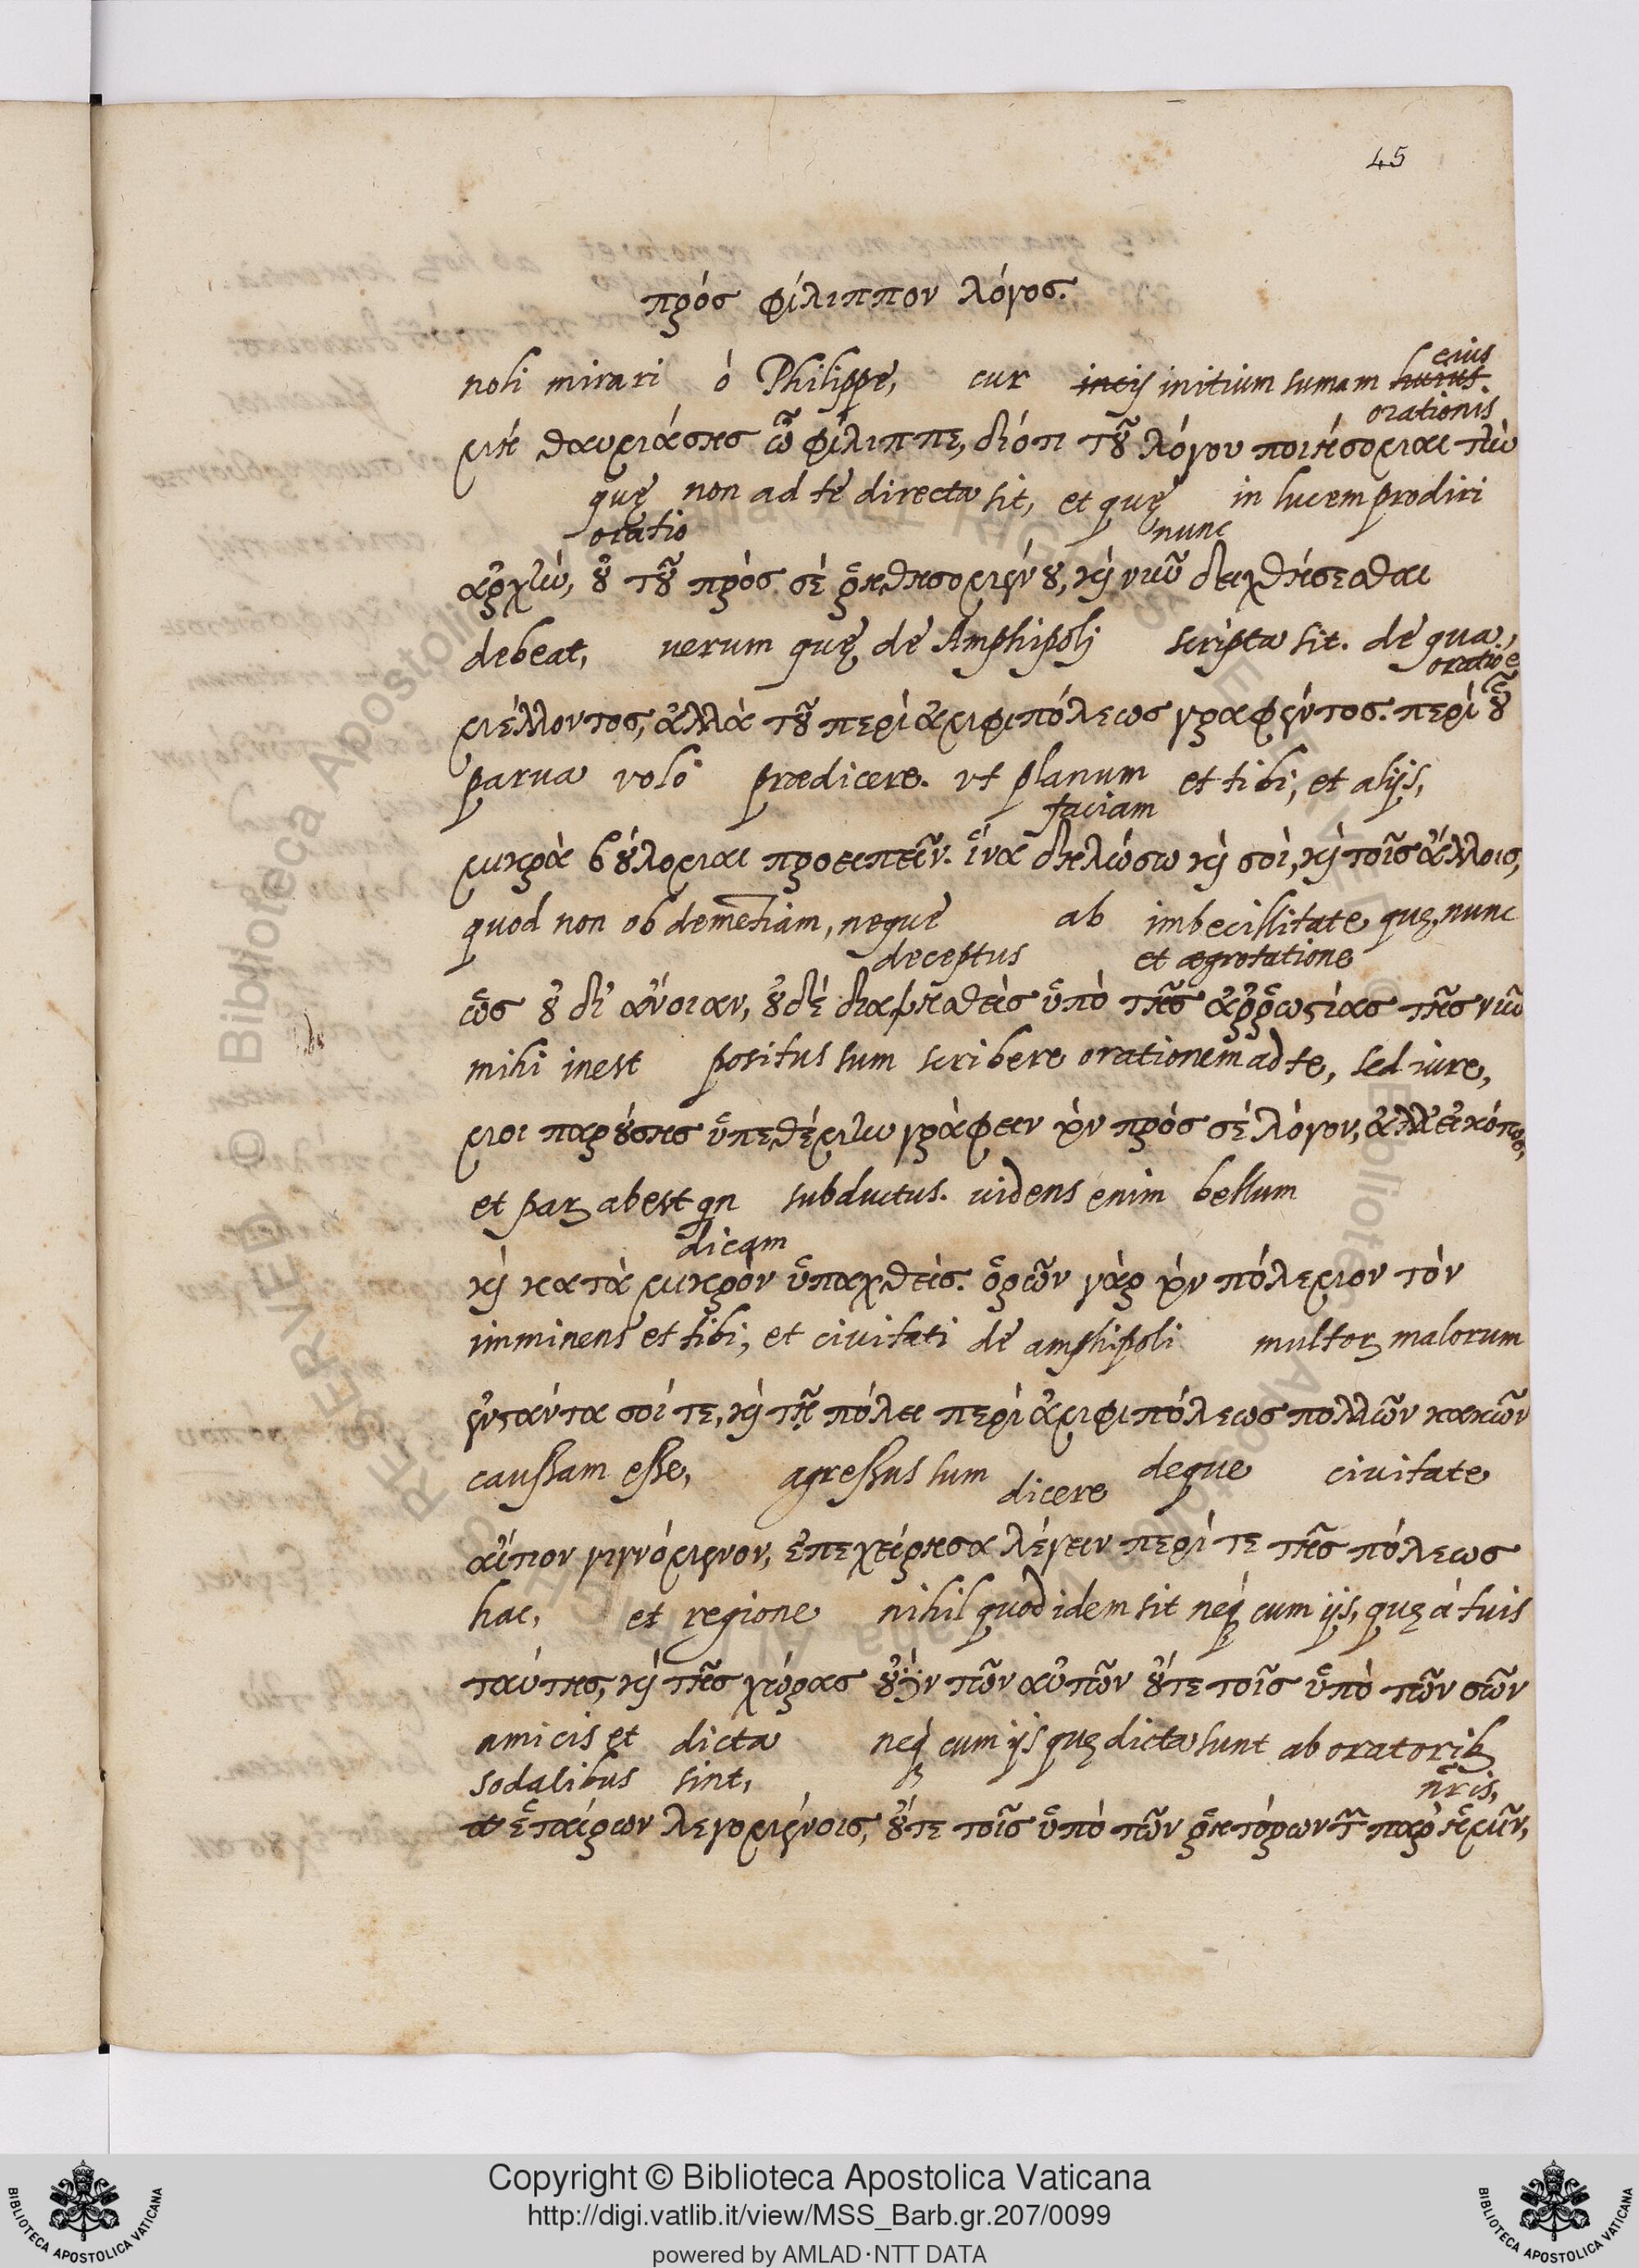 45
πρός φίλιππον λόγος.
noli mirari ó Philippe, cur incis initium sumam huius eius
orationis
μή θαυμάσης ὦ φίλιππε, διότι τοῦ λόγου ποιήσομαι τὴν
quę non ad te directa sit, et quę in lucem prodiri
oratio nunc
ἀρχὴν, οὐ τοῦ πρὸς σέ ῥηθησομένου, καὶ νῦν δειχθήσεσθαι
debeat, uerum quę de Amphipoli scripta sit. de qua,
oratioē
μέλλοντος, ἀλλὰ τοῦ περὶ ἀμφιπόλεως γραφέντος. περὶ οὗ
parua volo prædicere. vt planum et tibi, et alijs,
faciam
μικρὰ βούλομαι προειπεῖν. ἵνα δηλώσω καὶ σοὶ, καὶ τοῖς ἄλλοις,
quod non ob demētiam, neque ab imbecillitate quę nunc
deceptus et ægrotatione
ὡς οὐ δι' ἄνοιαν, οὐδέ διαψευσθείς ὑπὸ τῆς ἀρρωστίας τῆς νῦν
mihi inest positus sum scribere orationem ad te, sed iure,
μοι παρούσης ὑπεθέμην γράφειν τὸν πρός σέ λόγον, ἀλλ' εἰκότως,
et par abest qn subductus. uidens enim bellum
dicam
καὶ κατὰ μικρὸν ὑπαχθείς. ὁρῶν γὰρ τὸν πόλεμον τόν
imminens et tibi, et ciuitati de amphipoli multor malorum
ἐνστάντα σοί τε, καὶ τῇ πόλει περὶ ἀμφιπόλεως πολλῶν κακῶν
caussam esse, agressus sum dicere deque ciuitate
αἴτιον γιγνόμενον, ἐπεχείρησα λέγειν περί τε τῆς πόλεως
hac, et regione nihil quod idem sit neq cum ijs, quę á tuis
ταύτης, καὶ τῆς χώρας οὐδὲν τῶν αὐτῶν οὔτε τοῖς ὑπὸ τῶν σῶν
amicis et dicta neq cum ijs quę dicta sunt ab oratorib
sodalibus sint, nr̄is,
ἑταίρων λεγομένοις, οὔτε τοῖς ὑπὸ τῶν ῥητόρων τ̃ παρ' ἡμῖν,
Copyright © Biblioteca Apostolica Vaticana
http://digi.vatlib.it/view/MSS_Barb.gr.207/0099
powered by AMLAD·NTT DATA
BIBLIOTECA APOSTOLICA VATICANA
BIBLIOTECA APOSTOLICA VATICANA